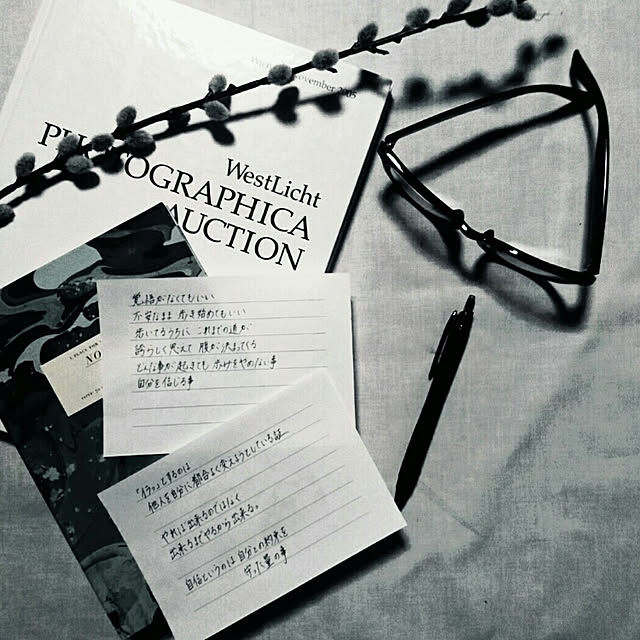 November 2005
WestLicht
PHOTOGRAPHICA
AUCTION
NO
覚悟がなくてもいい
不安なまま歩き始めてもいい
歩いてるうちに これまでの道が
誇らしく思えて 腹が決まってくる
どんな事が起きても 歩けをやめない事
自分を信じる事
「イラッ」とするのは
他人を自分に都合よく変えようとしている証
やれば出来るのではなく
出来るまでやるから出来る。
自信というのは 自分との約束を
守った量の事